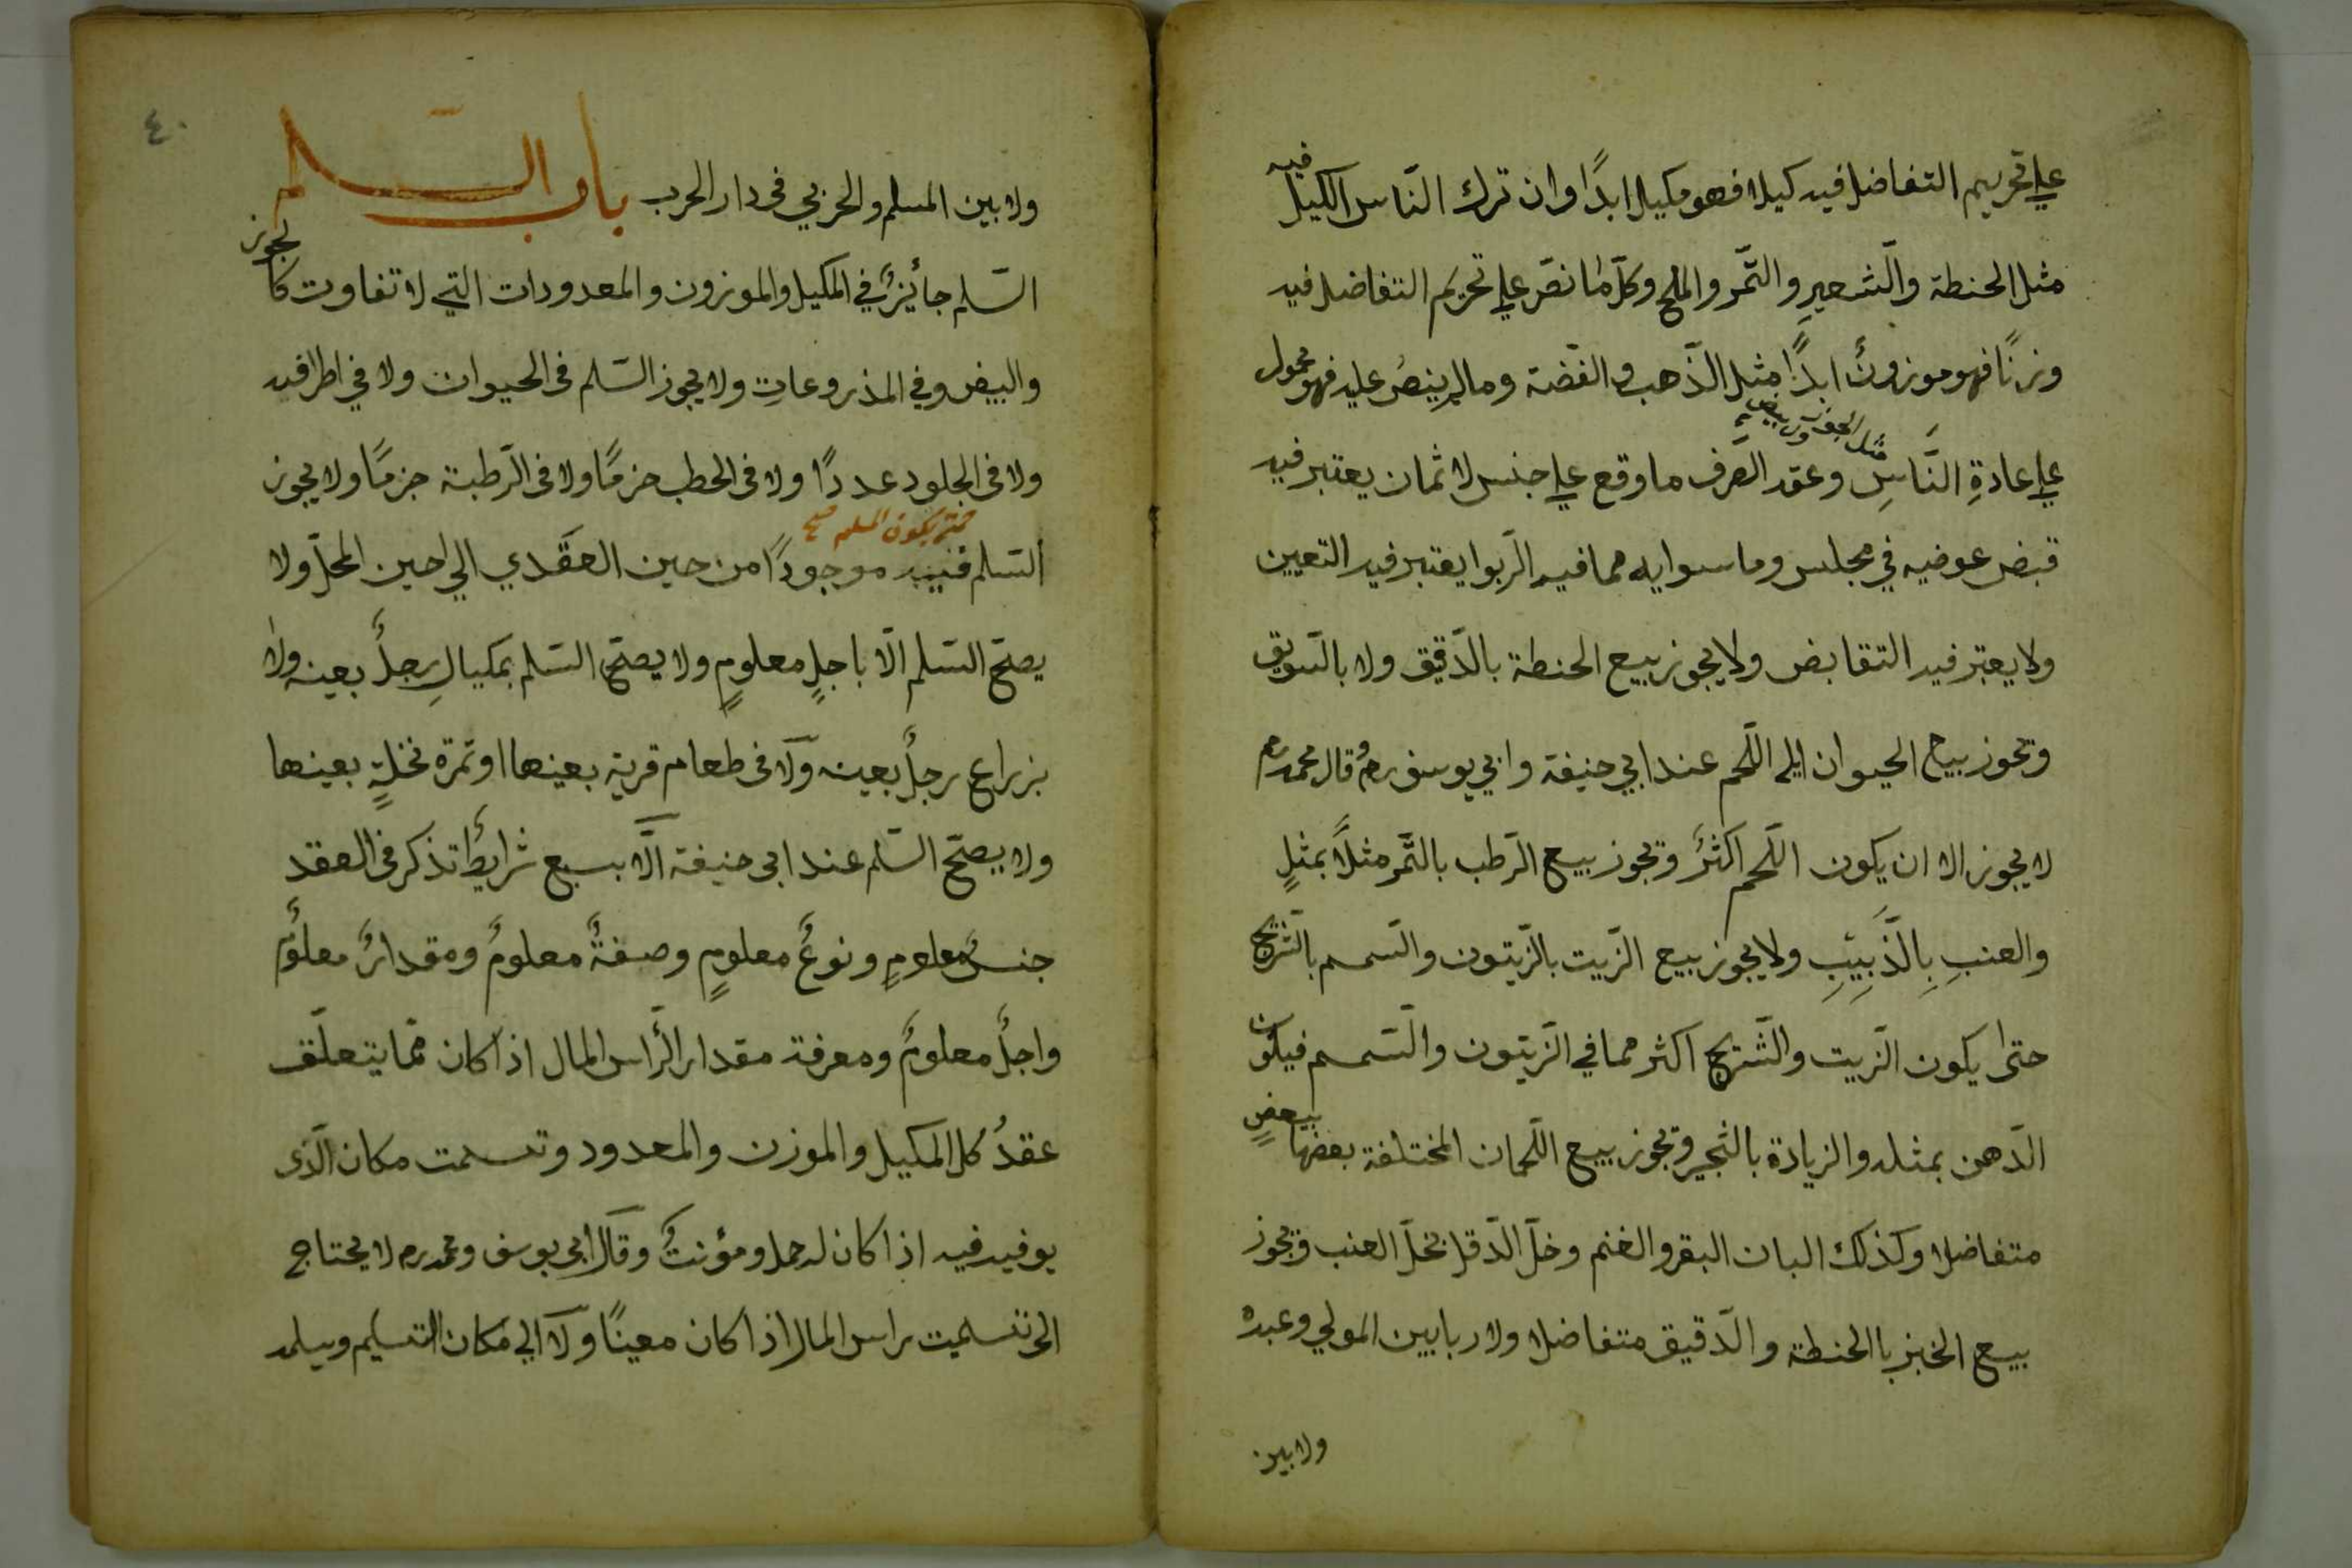 علي تحريم التفاضل فيه كيلا فهو مكيل ابدًا وان ترك الناس الكيل فيه
مثل الحنطة والشعير والتّمر والملح وكلّ ما نصّ علي تحريم التفاضل فيه
وزنًا فهو موزونٌ ابدًا مثل الذّهب والفضّة ومالم ينص عليه فهو محمول
علي عادةِ النَّاسِ وعقد الصّرف ما وقع علي جنس لاثمان يعتبر فيه
قبض عوضيه في مجلس وما سوايه مما فيه الرّبوا يعتبر فيه التعيين
ولا يعتبر فيه التقابض ولا يجوز بيع الحنطة بالدّقيق ولا بالسّويق
وتجوز بيع الحيوان الي اللّحم عند ابي حنيفة وابي يوسف رح قال محمد رح
لا يجوز الا ان يكون اللّحم اكثرَ وتجوز بيع الرّطب بالتّمر مثلاً بمثلٍ
والعنبِ بِالذَّبيبِ ولا يجوز بيع الزّيت بالزّيتون والسّمسم بالشّريج
حتى يكون الزّيت والشّريج اكثر مما في الزّيتون والسّمسم فيكون
الدّهن بمثله والزيادة بالثّجير وتجوز بيع اللّحمان المختلفة بعضها ببعضٍ
متفاضلا وكذلك البان البقر والغنم وخلّ الدّقل بخلّ العنب وتجوز
بيع الخبز باالحنطة والدّقيق متفاضلا ولا ربا بين المولي وعبده
ولا بين
٤٠
ولا بين المسلم والحربي في دار الحرب باب السّلم
السّلم جائزٌ في المكيل والموزون والمعدودات التي لا تفاوت كالجوز
والبيض وفي المذروعاتِ ولا يجوز السّلم فى الحيوان ولا في اطرافيه
ولا فى الجلود عددًا ولا فى الحطب حزمًا ولا فى الرّطبة جزمًا ولا يجوز
حتى يكون المسلم صح
السّلم فيه موجودًا من حين العقدي الي حين المحلّ ولا
يصحّ السّلم الّا باجلٍ معلومٍ ولا يصحّ السّلم بمكيالِ رجلٌ بعينه ولا
بزراع رجلٌ بعينه ولا فى طعام قرية بعينها او تمرة نخلةٍ بعينها
ولا يصحّ السّلم عند ابى حنيفة الّا بسبع شرايطٌ تذكر فى العقد
جنسٌ معلومٍ ونوعٌ معلومٍ وصفةٌ معلومٌ ومقدارٌ معلومٌ
واجلٌ معلومٌ ومعرفة مقدار الرّاس المال اذا كان ممّا يتعلّق
عقدُ كل المكيل والموزن والمعدود وتسلمت مكان الّذى
يوفيه فيه اذا كان له حمل ومؤنتٌ وقال ابى يوسف ومحمد رح لا يحتاج
الى تسليت راس المال اذا كان معينًا ولا الي مكان التسليم ويسلمه